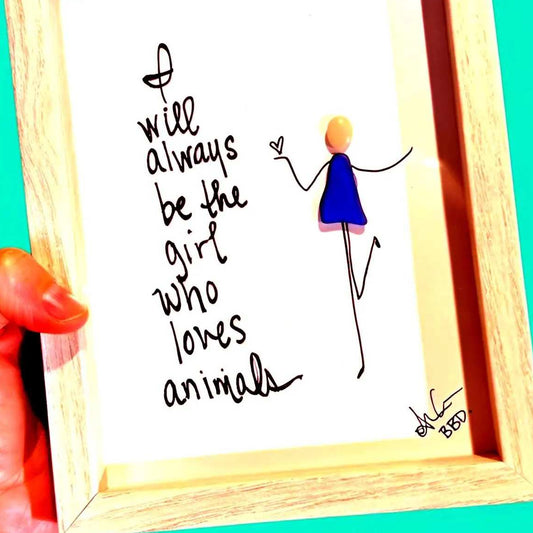 I
will
always
be the
girl
who
loves
animals
BBD.